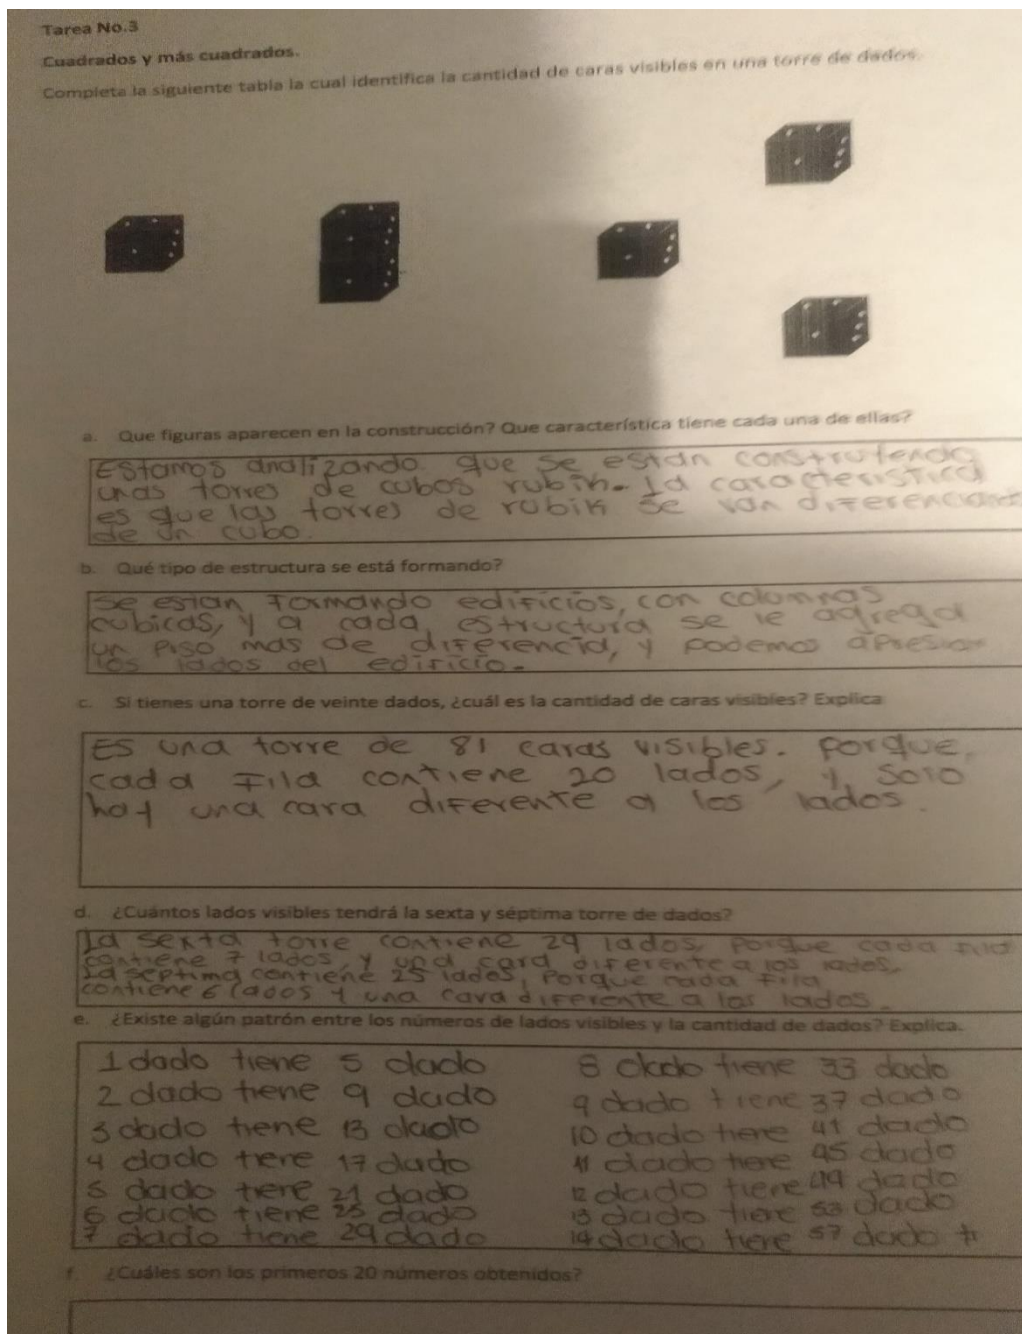 Tarea No.3
Cuadrados y más cuadrados.
Completa la siguiente tabla la cual identifica la cantidad de caras visibles en una torre de dados.
a. Que figuras aparecen en la construcción? Que característica tiene cada una de ellas?
Estamos analizando que se están construfendo
unas torres de cubos rubik. La caracteristica
es que las torres de rubik se van diferenciando
de un cubo.
b. Qué tipo de estructura se está formando?
se estan formando edificios, con columnas
cubicas, y a cada estructura se le agrega
un piso mas de diferencia, y podemos apresiar
los lados del edificio.
c. Si tienes una torre de veinte dados, ¿cuál es la cantidad de caras visibles? Explica
ES una torre de 81 caras visibles. Porque,
cada Fila contiene 20 lados, y solo
hay una cara diferente a los lados.
d. ¿Cuántos lados visibles tendrá la sexta y séptima torre de dados?
La sexta torre contiene 29 lados, porque cada fila
contiene 7 lados, y una cara diferente a los lados.
La septima contiene 25 lados, Porque cada fila
contiene 6 lados y una cara diferente a los lados.
e. ¿Existe algún patrón entre los números de lados visibles y la cantidad de dados? Explica.
1 dado tiene 5 dado
2 dado tiene 9 dado
3 dado tiene 13 dado
4 dado tiene 17 dado
5 dado tiene 21 dado
6 dado tiene 25 dado
7 dado tiene 29 dado
8 dado tiene 33 dado
9 dado tiene 37 dado
10 dado tiene 41 dado
11 dado tiene 45 dado
12 dado tiene 49 dado
13 dado tiene 53 dado
14 dado tiene 57 dado
f. ¿Cuáles son los primeros 20 números obtenidos?